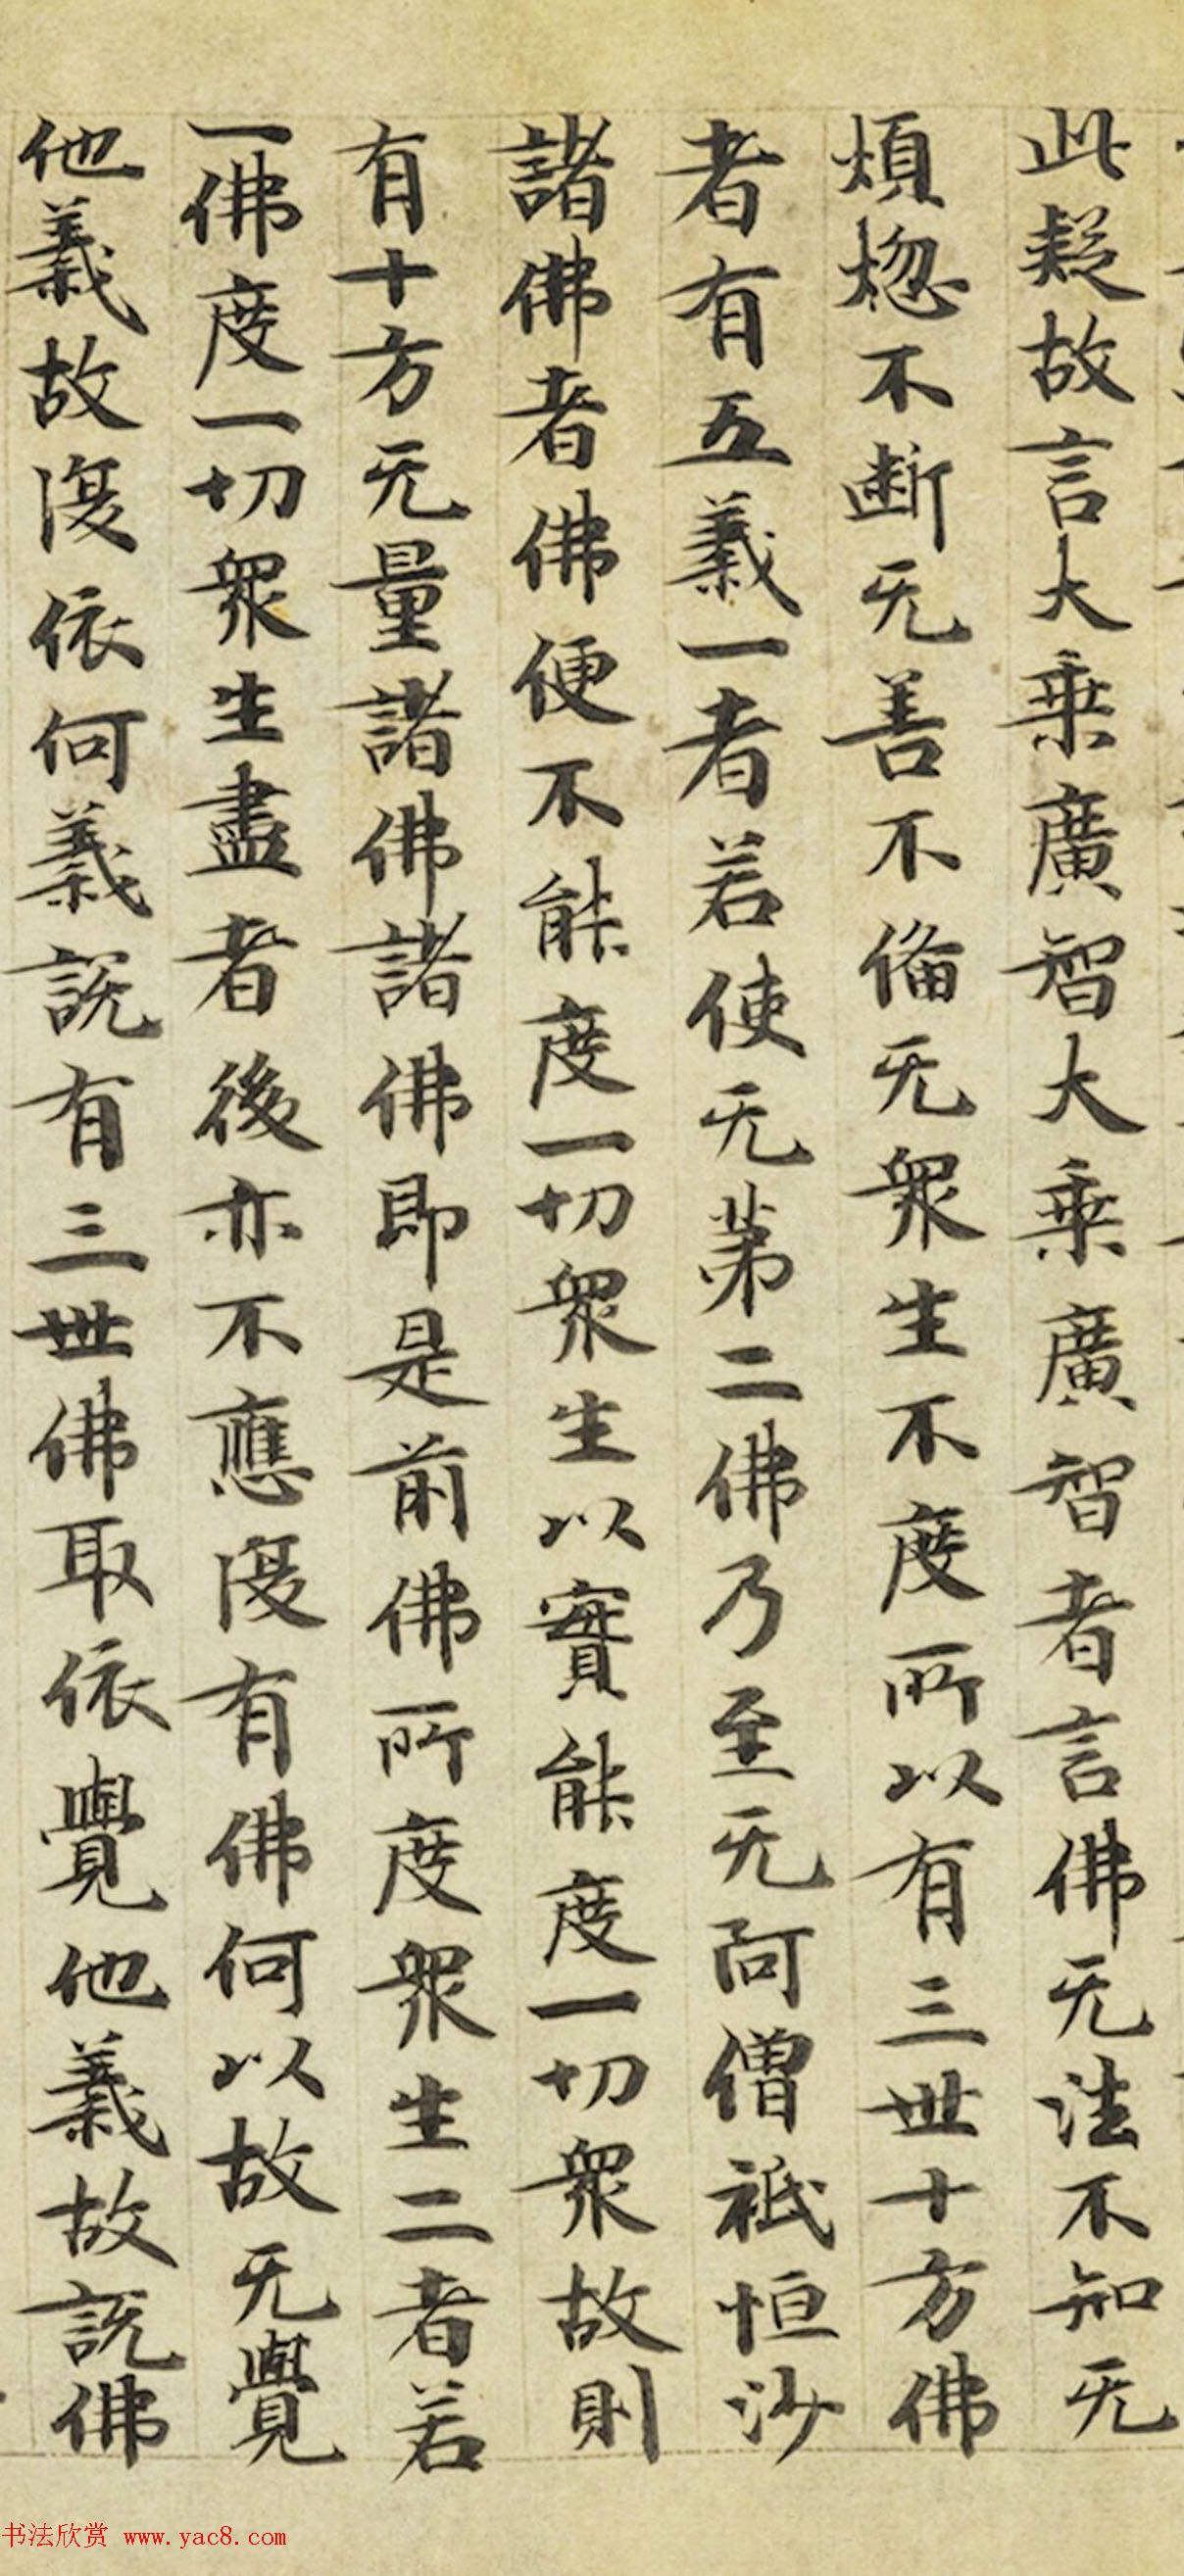 此疑故言大乘廣智大乘廣智者言佛无法不知无
煩惚不断无善不俻无衆生不度所以有三世十方佛
者有五義一者若使无苐二佛乃至无阿僧祇恒沙
諸佛者佛便不能度一切衆生以實能度一切衆故則
有十方无量諸佛諸佛即是前佛所度衆生二者若
一佛度一切衆生盡者後亦不應復有佛何以故无覺
他義故復依何義説有三世佛取依覺他義故説佛
书法欣赏 www.yac8.com